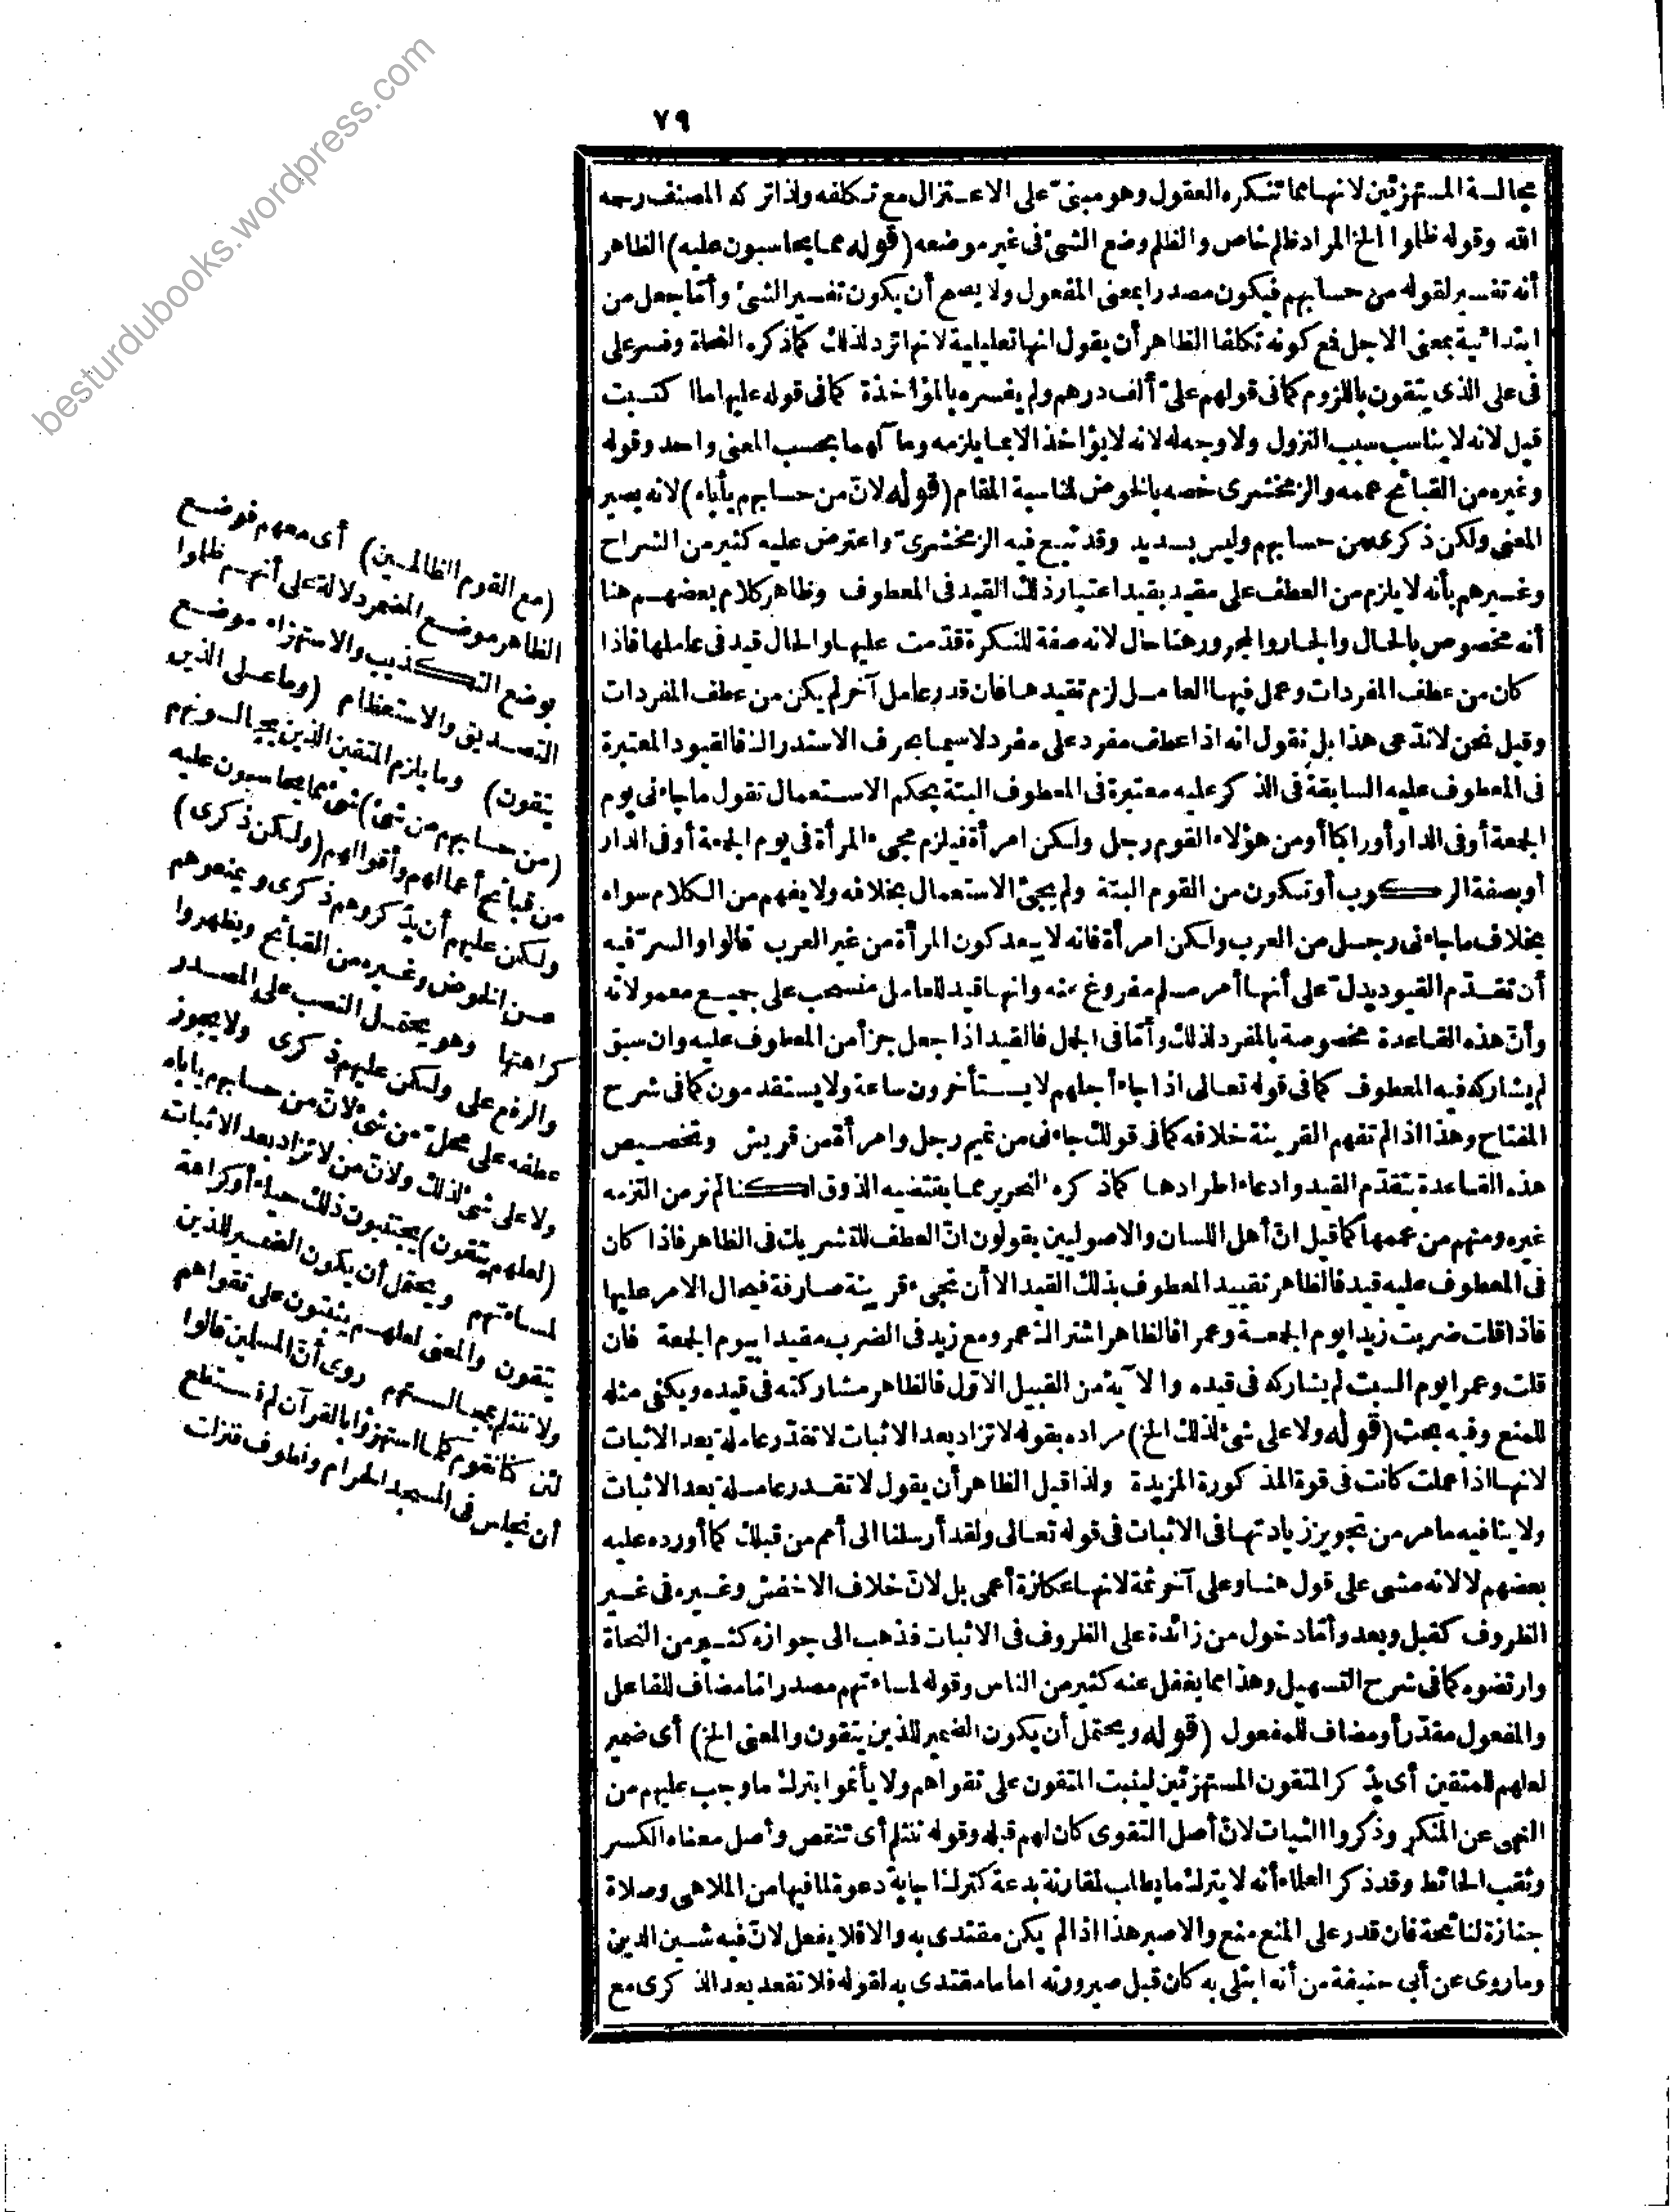 ٧٩
مجالسة المستهزئين لانها مما تنكره العقول وهو مبنىّ على الاعتزال مع تكلفه ولذا تركه المصنف رحمه
الله وقوله ظلموا الخ المراد ظلم خاص والظلم وضع الشئ فى غير موضعه (قوله مما يحاسبون عليه) الظاهر
أنه تفسير لقوله من حسابهم فيكون مصدرا بمعنى المفعول ولا يصح أن يكون تفسير الشئ وأمّا جعل من
ابتدائية بمعنى الاجل فمع كونه تكلفا الظاهر أن يقول انها تعليلية لانها ترد لذلك كما ذكره النحاة وفسر على
فى على الذى يتقون باللزوم كما فى قولهم علىّ ألف درهم ولم يفسره بالمؤاخذة كما فى قوله عليها ما اكتسبت
قيل لانه لا يناسب سبب النزول ولا وجه له لانه لا يؤاخذ الا بما يلزمه ومآلهما بحسب المعنى واحد وقوله
وغيره من القبائح عممه والزمخشرى خصه بالخوض لمناسبة المقام (قوله لانّ من حسابهم يأباه) لانه يصير
المعنى ولكن ذكرى من حسابهم وليس بسديد وقد تبع فيه الزمخشرىّ واعترض عليه كثير من الشراح
وغيرهم بأنه لا يلزم من العطف على مقيد بقيد اعتبار ذلك القيد فى المعطوف وظاهر كلام بعضهم هنا
أنه مخصوص بالحال والجار والمجرور هنا حال لانه صفة للنكرة قدّمت عليها والحال قيد فى عاملها فاذا
كان من عطف المفردات وعمل فيها العامل لزم تقيدها فان قدر عامل آخر لم يكن من عطف المفردات
وقيل نحن لا ندّعى هذا بل نقول انه اذا عطف مفرد على مفرد لا سيما بحرف الاستدراك فالقيود المعتبرة
فى المعطوف عليه السابقة فى الذكر عليه معتبرة فى المعطوف البتة بحكم الاستعمال تقول ما جاءنى يوم
الجمعة أو فى الدار أو راكبا أو من هؤلاء القوم رجل ولكن امرأة فيلزم مجىء المرأة فى يوم الجمعة أو فى الدار
أو بصفة الركوب أو تكون من القوم البتة ولم يجئ الاستعمال بخلافه ولا يفهم من الكلام سواه
بخلاف ما جاءنى رجل من العرب ولكن امرأة فانه لا يبعد كون المرأة من غير العرب قالوا والسرّ فيه
أن تقدّم القيود يدل على أنها أمر مسلم مفروغ منه وانها قيد للعامل منسحب على جميع معمولاته
وأنّ هذه القاعدة مخصوصة بالمفرد لذلك وأمّا فى الجمل فالقيد اذا جعل جزأ من المعطوف عليه وان سبق
لم يشاركه فيه المعطوف كما فى قوله تعالى اذا جاء أجلهم لا يستأخرون ساعة ولا يستقدمون كما فى شرح
المفتاح وهذا اذا لم تفهم القرينة خلافه كما فى قولك جاءنى من تميم رجل وامرأة من قريش وتخصيص
هذه القاعدة بتقدّم القيد وادعاء اطرادها كما ذكره النحرير مما يقتضيه الذوق لكنا لم نر من التزمه
غيره ومنهم من عممها كما قيل انّ أهل اللسان والاصوليين يقولون انّ العطف للتشريك فى الظاهر فاذا كان
فى المعطوف عليه قيد فالظاهر تقييد المعطوف بذلك القيد الا أن تجىء قرينة صارفة فيحال الامر عليها
فاذا قلت ضربت زيدا يوم الجمعة وعمرا فالظاهر اشتراك عمرو مع زيد فى الضرب مقيدا بيوم الجمعة فان
قلت وعمرا يوم السبت لم يشاركه فى قيده والآية من القبيل الاوّل فالظاهر مشاركته فى قيده ويكفى مثله
للمنع وفيه بحث (قوله ولا على شئ لذلك الخ) مراده بقوله لا تزاد بعد الاثبات لا تقدّر عاملة بعد الاثبات
لانها اذا عملت كانت فى قوة المذكورة المزيدة ولذا قيل الظاهر أن يقول لا تقدر عاملة بعد الاثبات
ولا ينافيه ما مر من تجويز زيادتها فى الاثبات فى قوله تعالى ولقد أرسلنا الى أمم من قبلك كما أورده عليه
بعضهم لا لانه مشى على قول هنا وعلى آخر ثمة لانها عكازة أعمى بل لانّ خلاف الاخفش وغيره فى غير
الظروف كقبل وبعد وأمّا دخول من زائدة على الظروف فى الاثبات فذهب الى جوازه كثير من النحاة
وارتضوه كما فى شرح التسهيل وهذا مما يغفل عنه كثير من الناس وقوله لمساءتهم مصدر امّا مضاف للفاعل
والمفعول مقدّر أو مضاف للمفعول (قوله ويحتمل أن يكون الضمير للذين يتقون والمعنى الخ) أى ضمير
لعلهم للمتقين أى يذكر المتقون المستهزئين ليثبت المتقون على تقواهم ولا يأثموا بترك ما وجب عليهم من
النهى عن المنكر وذكروا الثبات لانّ أصل التقوى كان لهم قبله وقوله تنثلم أى تنقص وأصل معناه الكسر
وثقب الحائط وقد ذكر العلماء أنه لا يترك ما يطلب لمقارنة بدعة كترك اجابة دعوة لما فيها من الملاهى وصلاة
جنازة لنائحة فان قدر على المنع منع والا صبر هذا اذا لم يكن مقتدى به والا فلا يفعل لانّ فيه شين الدين
وما روى عن أبى حنيفة من أنه ابتلى به كان قبل صيرورته اماما مقتدى به لقوله فلا تقعد بعد الذكرى مع
(مع القوم الظالمين) أى معهم فوضع
الظاهر موضع المضمر دلالة على أنهم ظلموا
بوضع التكذيب والاستهزاء موضع
التصديق والاستعظام (وما على الذين
يتقون) وما يلزم المتقين الذين يجالسونهم
(من حسابهم من شئ) شئ مما يحاسبون عليه
من قبائح أعمالهم وأقوالهم (ولكن ذكرى)
ولكن عليهم أن يذكروهم ذكرى ويمنعوهم
عن الخوض وغيره من القبائح ويظهروا
كراهتها وهو يحتمل النصب على المصدر
والرفع على ولكن عليهم ذكرى ولا يجوز
عطفه على محلّ من شئ لانّ من حسابهم يأباه
ولا على شئ لذلك ولانّ من لا تزاد بعد الاثبات
(لعلهم يتقون) يجتنبون ذلك حياء أو كراهة
لمساءتهم ويحتمل أن يكون الضمير للذين
يتقون والمعنى لعلهم يثبتون على تقواهم
ولا تنثلم بمجالستهم روى أنّ المسلمين قالوا
لئن كنا نقوم كلما استهزؤا بالقرآن لم نستطع
أن نجلس فى المسجد الحرام ونطوف فنزلت
besturdubooks.wordpress.com